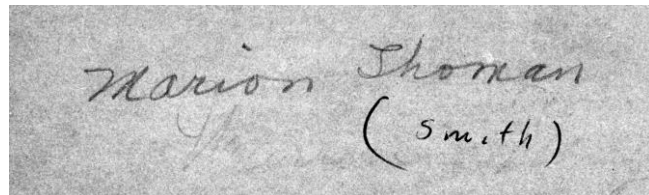 Marion Thoman
(Smith)